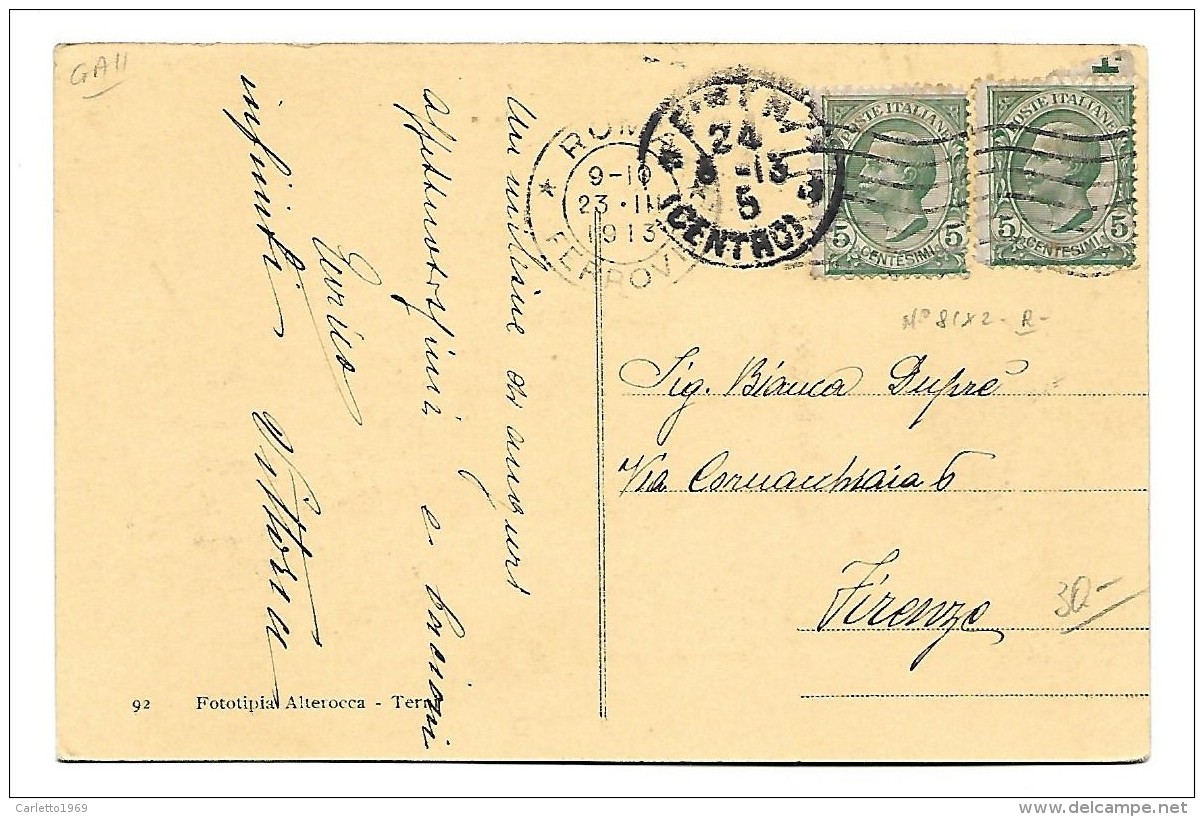 GA11
Un milione di auguri
affettuosissimi e bacioni
infiniti Vittoria
ROMA
9-10
23·III
1913
FERROVIA
FIRENZE
24
3-13
5
(CENTRO)
POSTE ITALIANE
5 CENTESIMI 5
POSTE ITALIANE
5 CENTESIMI 5
Nº 81X2-R-
Sig. Bianca Dupré
Via Cornacchiaia 6
Firenze
30-
92 Fototipia Alterocca - Terni
Carletto1969
www.delcampe.net